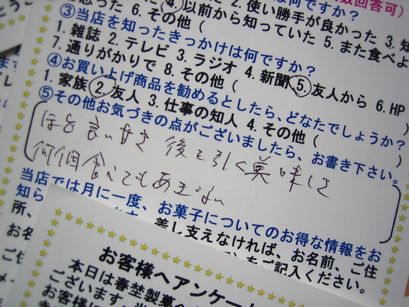 ④以前から知っていた 5.また食べよ
6.その他(
③当店を知ったきっかけは何ですか？
1.雑誌 2.テレビ 3.ラジオ 4.新聞 ⑤友人から 6.HP
7.通りがかりで 8.その他(
④お買い上げ商品を勧めるとしたら、どなたでしょうか？
1.家族 ②友人 3.仕事の知人 4.その他(
⑤その他お気づきの点がございましたら、お書き下さい。
ほど良い甘さ 後を引く美味しさ
何個食べてもあきない
当店では月に一度、お菓子についてのお得な情報をお
知ら
差し支えなければ、お名前、ご住
所、
をご記入ください。
お客様へアンケート
本日は春埜製菓
ございます。
お客様